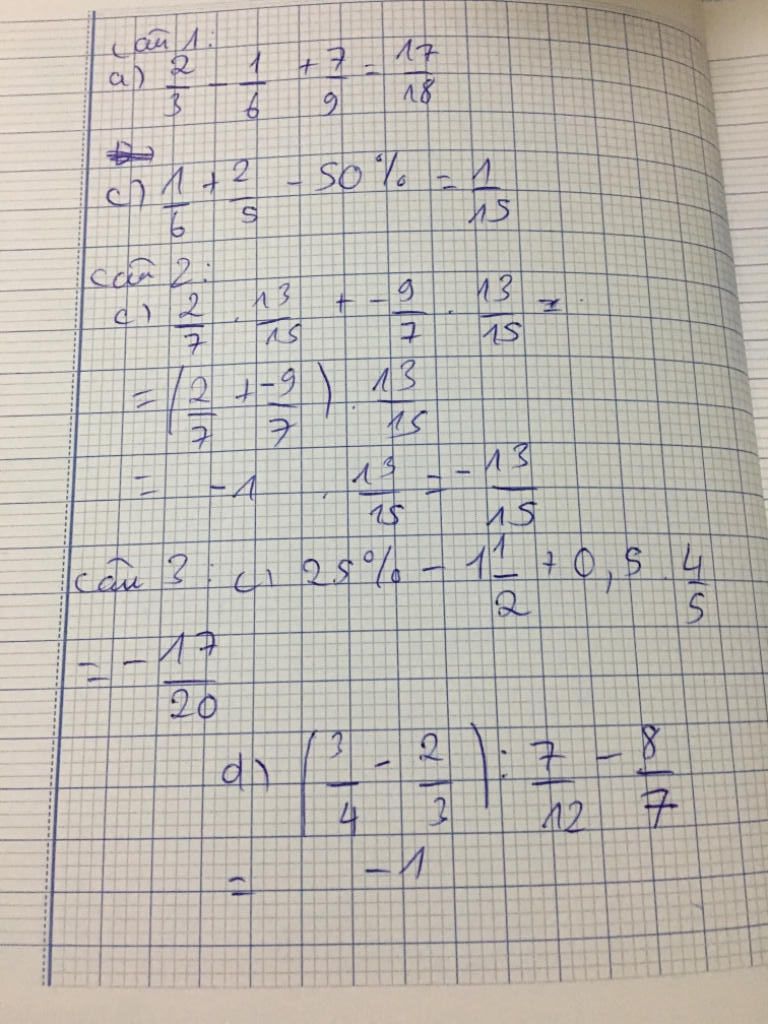 Câu 1:
a) 2/3 - 1/6 + 7/9 = 17/18
c) 1/6 + 2/5 - 50% = 1/15
câu 2:
c) 2/7 . 13/15 + -9/7 . 13/15 =
= (2/7 + -9/7) . 13/15
= -1 . 13/15 = -13/15
câu 3: c) 25% - 1 1/2 + 0,5 . 4/5
= -17/20
d) (3/4 - 2/3) : 7/12 - 8/7
= -1